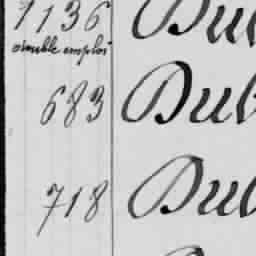 1136 Dub
double emploi
683 Dub
718 Dub